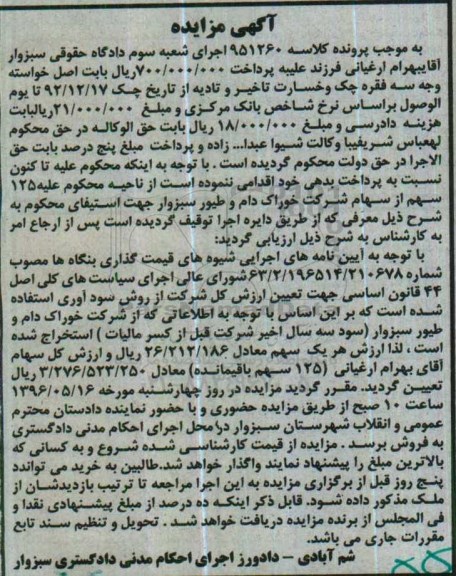 آگهی مزایده
به موجب پرونده کلاسه ۹۵۱۲۶۰ اجرای شعبه سوم دادگاه حقوقی سبزوار
آقایبهرام ارغیانی فرزند علیبه پرداخت ۷۰۰/۰۰۰/۰۰۰ریال بابت اصل خواسته
وجه سه فقره چک وخسارت تاخیر و تادیه از تاریخ چک ۹۲/۱۲/۱۷ تا یوم
الوصول براساس نرخ شاخص بانک مرکزی و مبلغ ۲۱/۰۰۰/۰۰۰ریالبابت
هزینه دادرسی و مبلغ ۱۸/۰۰۰/۰۰۰ ریال بابت حق الوکاله در حق محکوم
لهعباس شریفیبا وکالت شیوا عبدا... زاده و پرداخت مبلغ پنج درصد بابت حق
الاجرا در حق دولت محکوم گردیده است . با توجه به اینکه محکوم علیه تا کنون
نسبت به پرداخت بدهی خود اقدامی ننموده است از ناحیه محکوم علیه۱۲۵
سهم از سهام شرکت خوراک دام و طیور سبزوار جهت استیفای محکوم به
شرح ذیل معرفی که از طریق دایره اجرا توقیف گردیده است پس از ارجاع امر
به کارشناس به شرح ذیل ارزیابی گردید:
با توجه به آیین نامه های اجرایی شیوه های قیمت گذاری بنگاه ها مصوب
شماره ۶۳/۲/۱۹۶۵۱۴/۲۱۰۶۷۸شورای عالی اجرای سیاست های کلی اصل
۴۴ قانون اساسی جهت تعیین ارزش کل شرکت از روش سود آوری استفاده
شده است که بر این اساس با توجه به اطلاعاتی که از شرکت خوراک دام و
طیور سبزوار (سود سه سال اخیر شرکت قبل از کسر مالیات ) استخراج شده
است ، لذا ارزش هر یک سهم معادل ۲۶/۲۱۲/۱۸۶ ریال و ارزش کل سهام
آقای بهرام ارغیانی (۱۲۵ سهم باقیمانده) معادل ۳/۲۷۶/۵۲۳/۲۵۰ ریال
تعیین گردید. مقرر گردید مزایده در روز چهارشنبه مورخه ۱۳۹۶/۰۵/۱۶
ساعت ۱۰ صبح از طریق مزایده حضوری و با حضور نماینده دادستان محترم
عمومی و انقلاب شهرستان سبزوار درامحل اجرای احکام مدنی دادگستری
به فروش برسد . مزایده از قیمت کارشناسی شده شروع و به کسانی که
بالاترین مبلغ را پیشنهاد نمایند واگذار خواهد شد.طالبین به خرید می توانند
پنج روز قبل از برگزاری مزایده به این اجرا مراجعه تا ترتیب بازدیدشان از
ملک مذکور داده شود. قابل ذکر اینکه ده درصد از مبلغ پیشنهادی نقدا و
فی المجلس از برنده مزایده دریافت خواهد شد . تحویل و تنظیم سند تابع
مقررات جاری می باشد.
شم آبادی – دادورز اجرای احکام مدنی دادگستری سبزوار